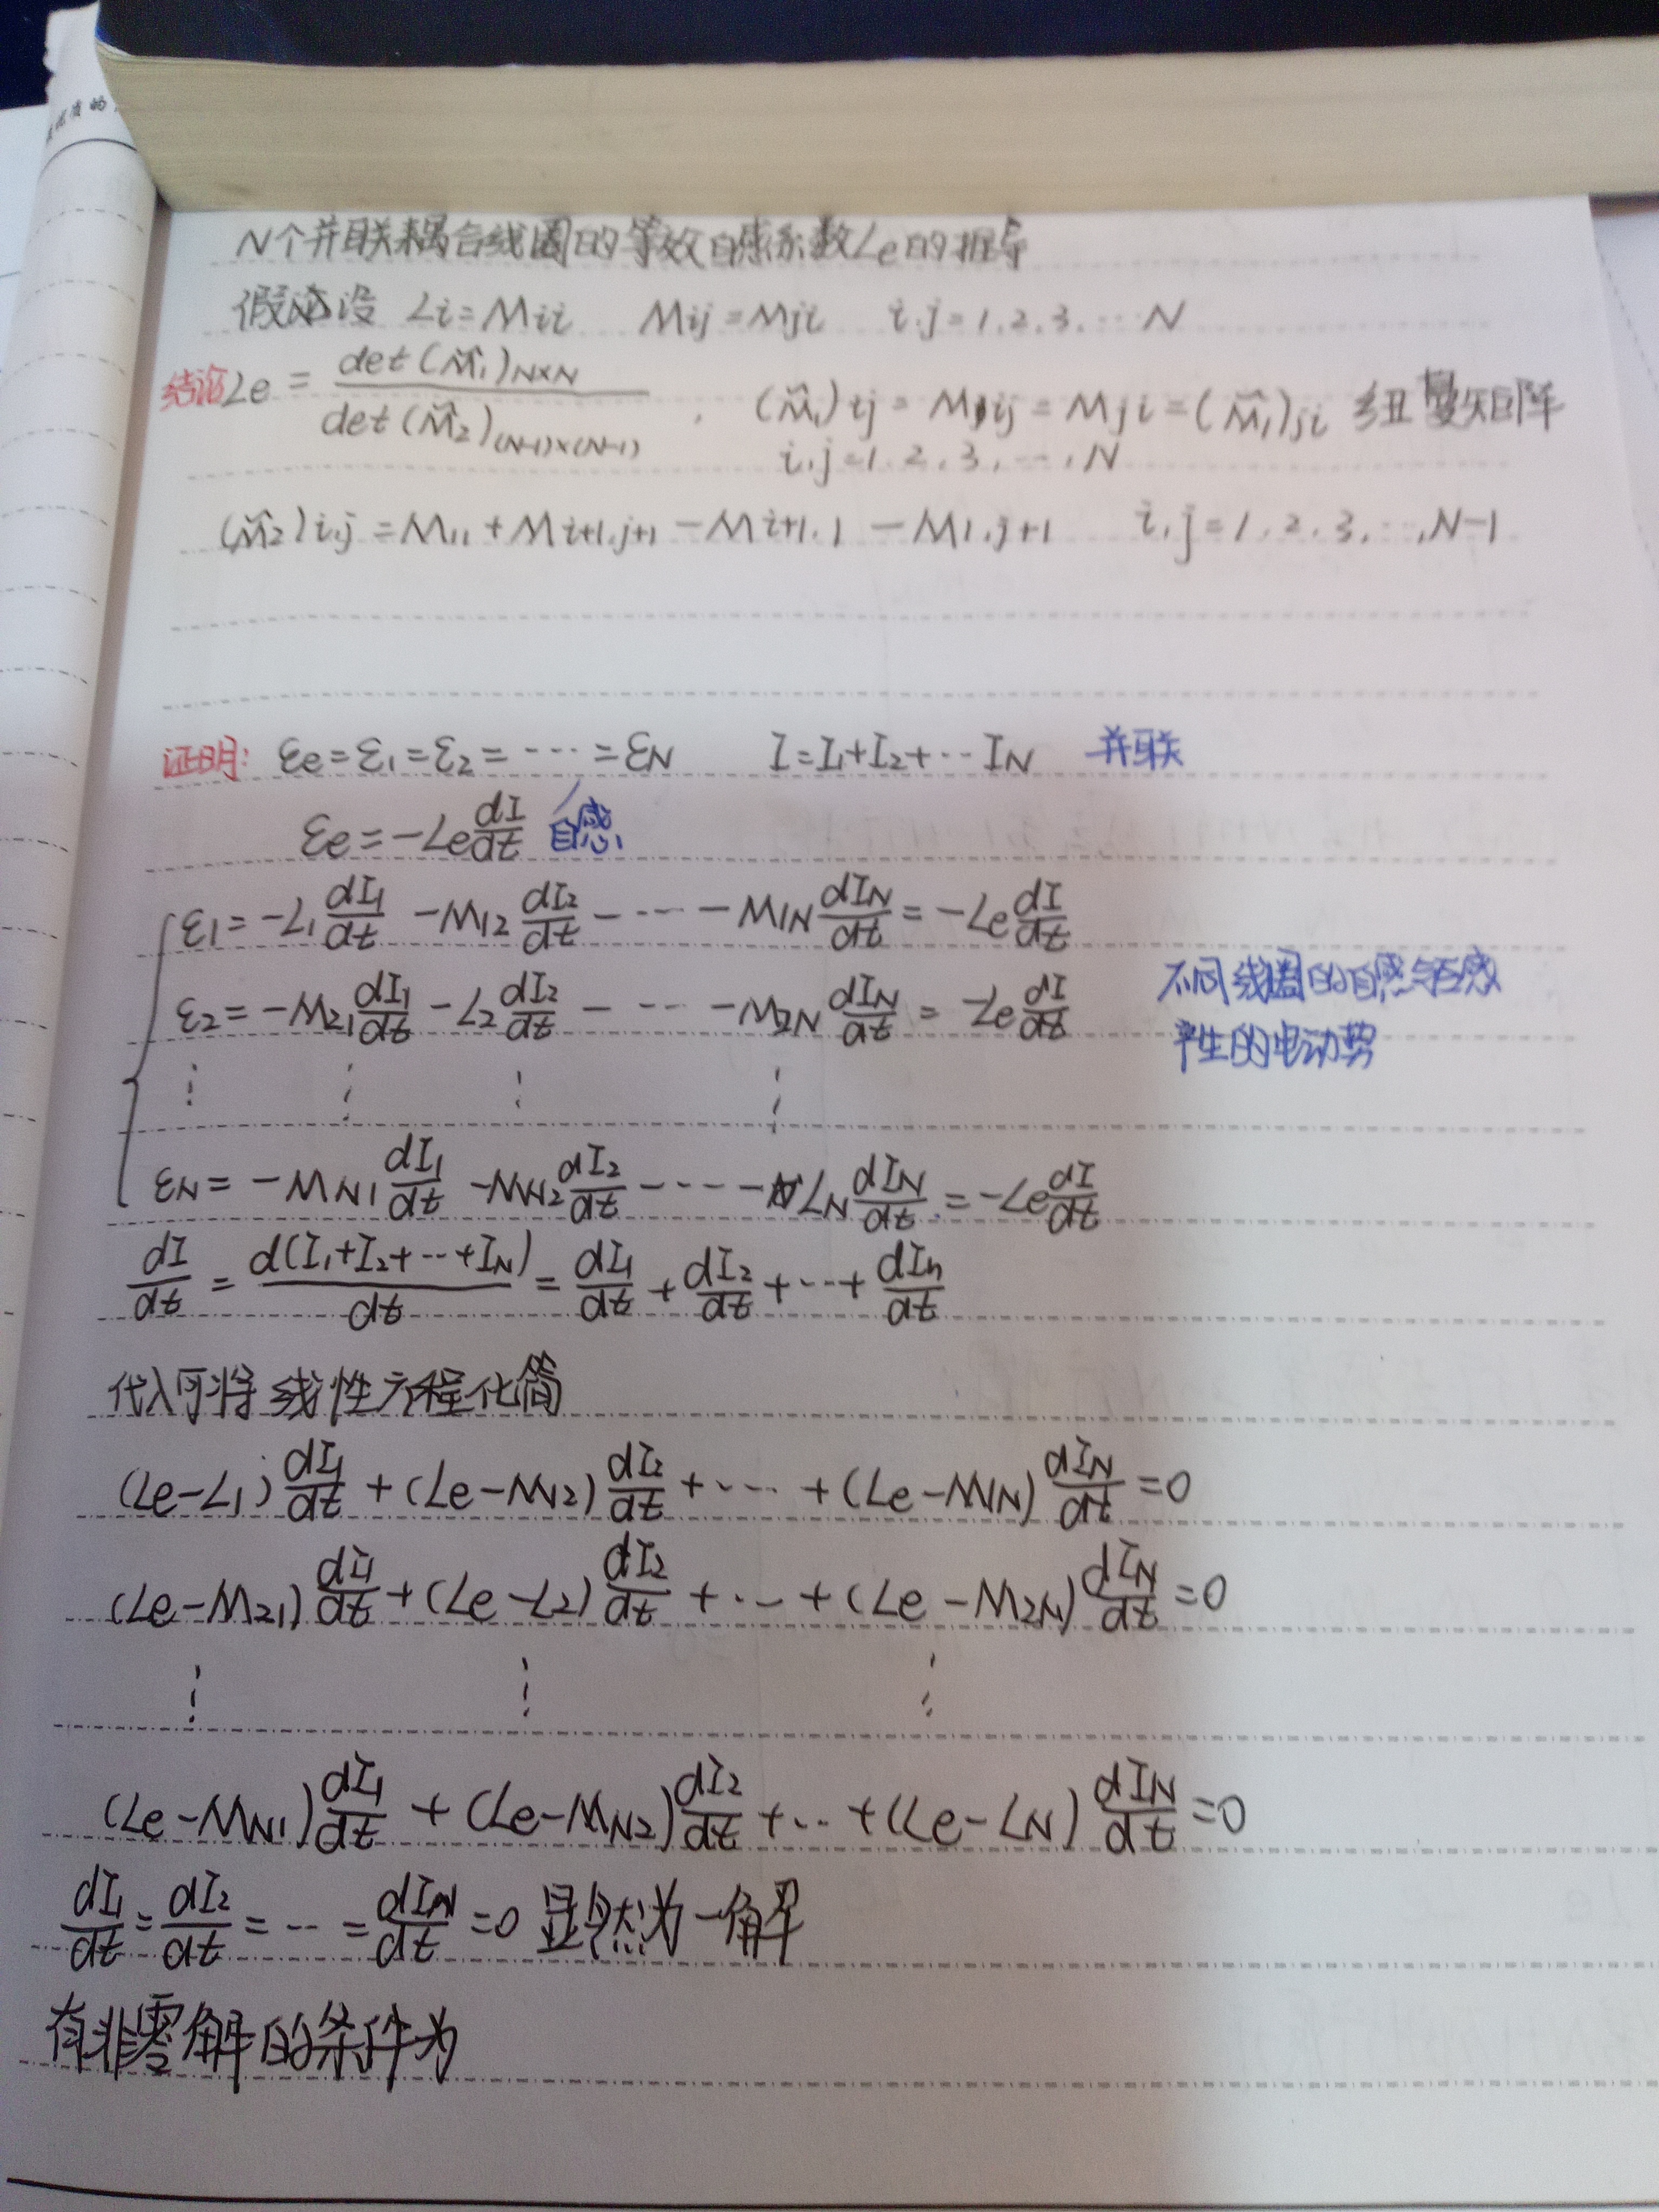 N个并联耦合线圈的等效自感系数Le的推导
假设 Li=Mii Mij=Mji i.j=1.2.3.…N
结论Le = det(M̂1)N×N / det(M̂2)(N-1)×(N-1) . (M̂1)ij = Mij = Mji = (M̂1)ji 矩阵
i,j=1.2.3.…,N
(M̂2)i,j = M1,1 + Mi+1,j+1 − Mi+1,1 − M1,j+1 i,j=1.2.3.…,N-1
证明: εe=ε1=ε2=…=εN I=I1+I2+…IN 并联
εe=−Le dI/dt 自感
ε1=−L1 dI1/dt −M12 dI2/dt −…−M1N dIN/dt = −Le dI/dt
ε2=−M21 dI1/dt −L2 dI2/dt −…−M2N dIN/dt = −Le dI/dt
不同线圈的自感与互感
产生的电动势
⋮ ⋮ ⋮ ⋮
εN=−MN1 dI1/dt −MN2 dI2/dt −…−LN dIN/dt = −Le dI/dt
dI/dt = d(I1+I2+…+IN)/dt = dI1/dt + dI2/dt +…+ dIn/dt
代入可将线性方程化简
(Le−L1) dI1/dt + (Le−M12) dI2/dt +…+ (Le−M1N) dIN/dt =0
(Le−M21) dI1/dt + (Le−L2) dI2/dt +…+ (Le−M2N) dIN/dt =0
⋮ ⋮ ⋮
(Le−MN1) dI1/dt + (Le−MN2) dI2/dt +…+ (Le−LN) dIN/dt =0
dI1/dt = dI2/dt = … = dIN/dt =0 显然为一解
有非零解的条件为